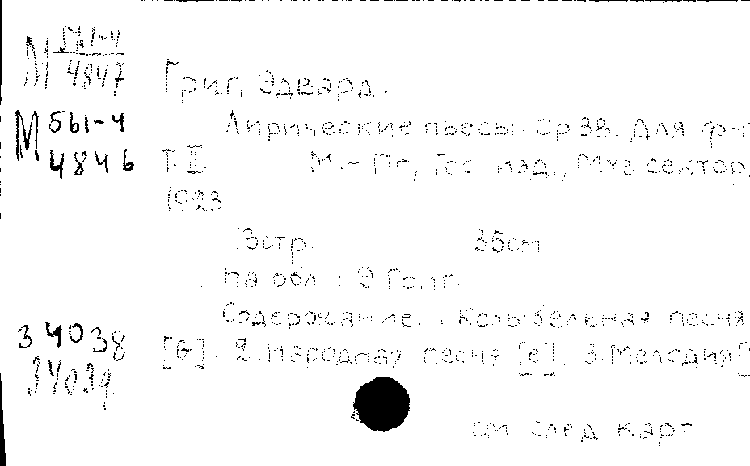 М 561-4
4847
Григ, Эдвард.
М 561-4
4846
Лирические пьесы. Ор 38. Для ф-п
Т. II М.-Пг, Гос. изд., Муз сектор,
1923
13стр. 35см
На обл.: Э Григ.
Содержание. 1. Колыбельная песня
[G]. 2. Народная песня [e]. 3. Мелодия [
34038
34039
см след карт